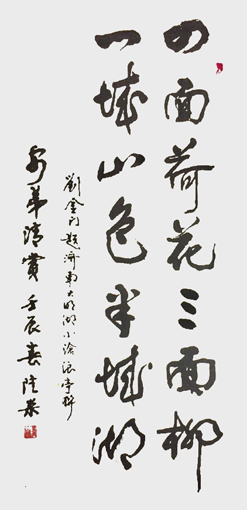 四面荷花三面柳
一城山色半城湖
劉金門題濟南大明湖小滄浪亭聯
弟清賞 壬辰春